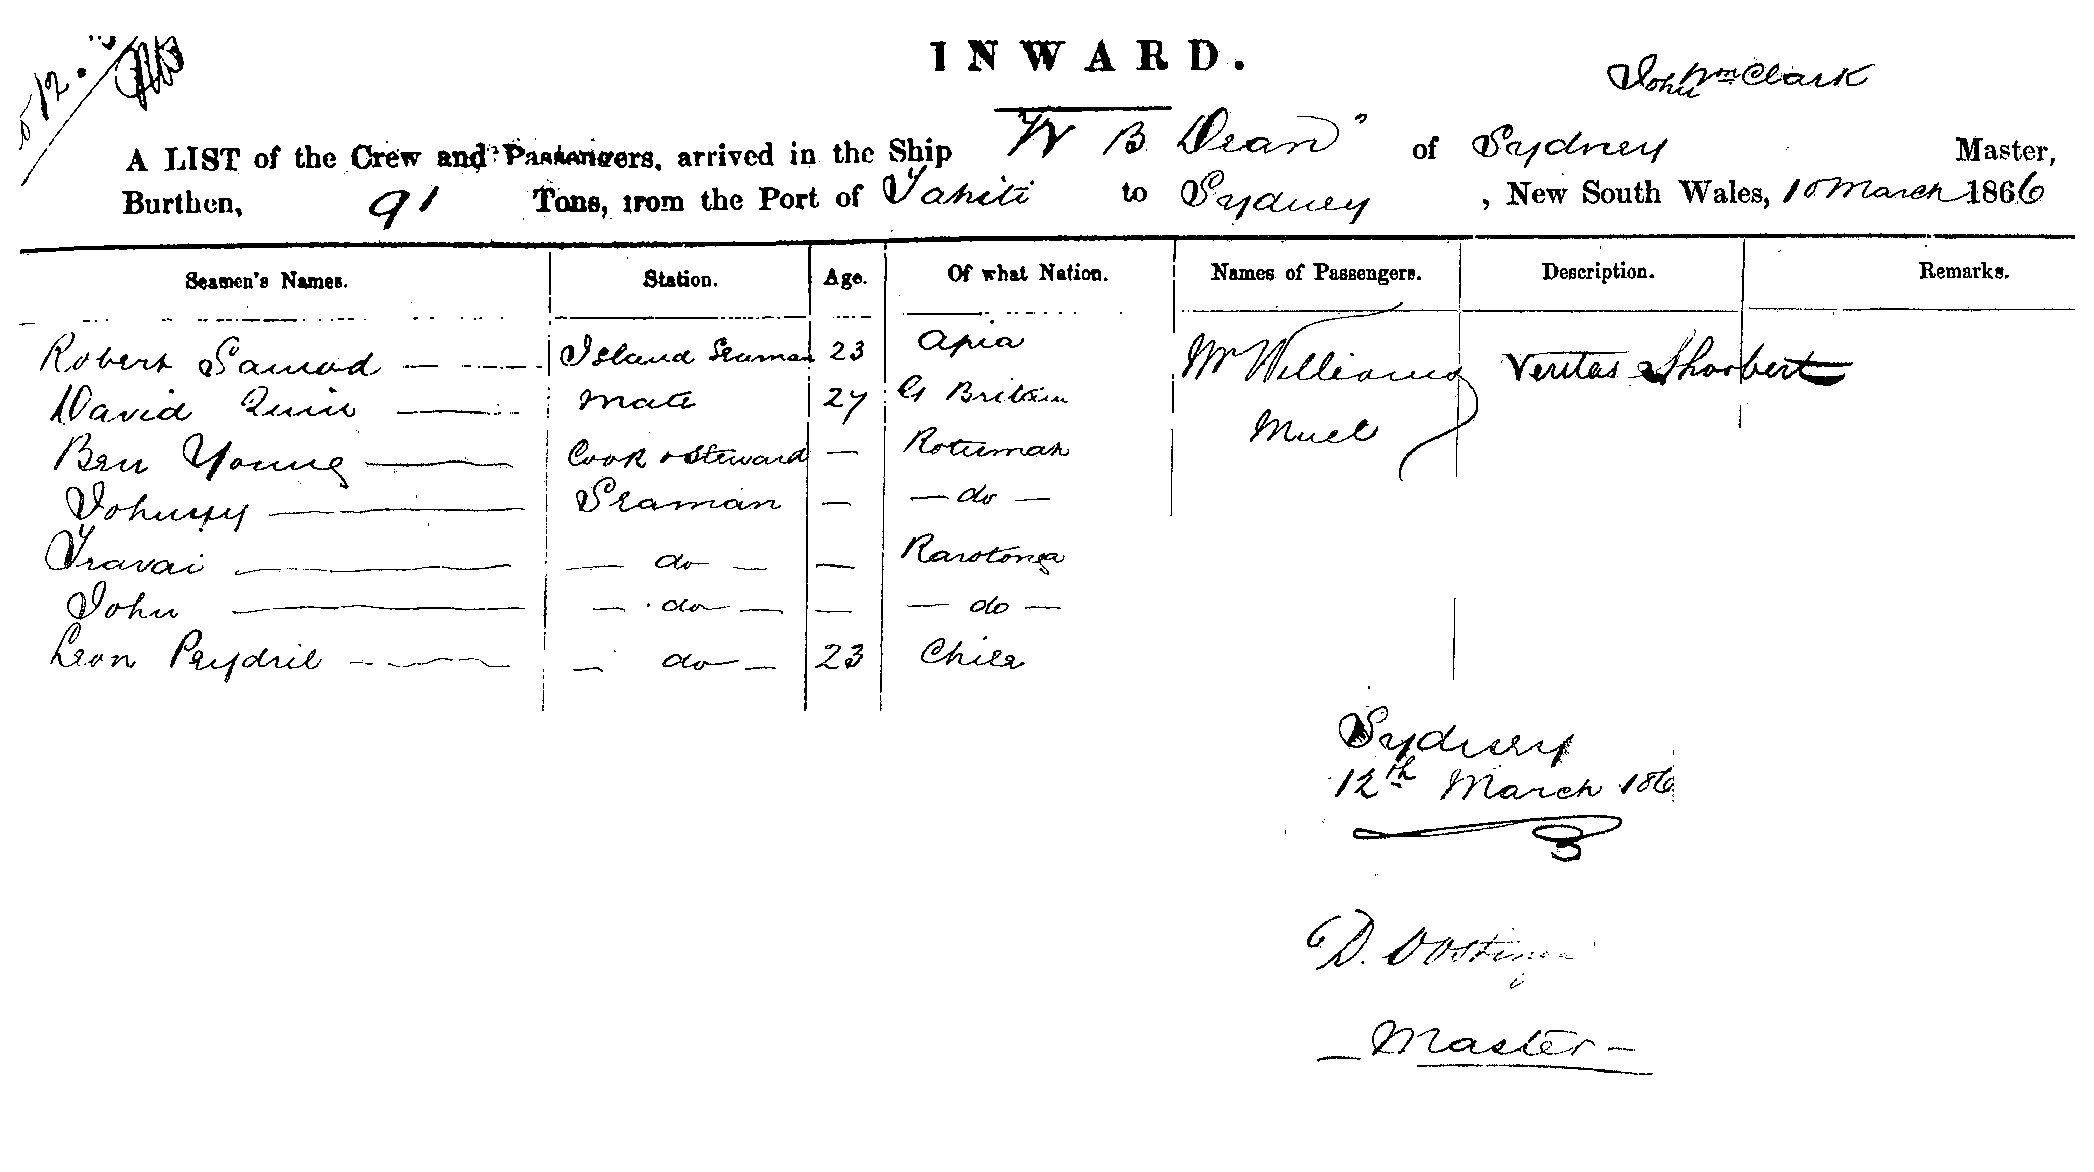 INWARD.
John Wm Clark
A LIST of the Crew and Passengers, arrived in the Ship W B Dean" of Sydney Master,
Burthen, 91 Tons, from the Port of Tahiti to Sydney, New South Wales, 10 March 1866
Seamen's Names. Station. Age. Of what Nation. Names of Passengers. Description. Remarks.
Robert — Island Seaman 23 Apia Mr Williams
David Quin — Mate 27 Gt Britain
Ben Young — Cook & Steward — Rotumah
Johnny — Seaman — — do —
Travai — — do — — Rarotonga
John — — do — — — do —
Leon — — do — 23 Chile
Sydney
12th March 186
D.
— Master —